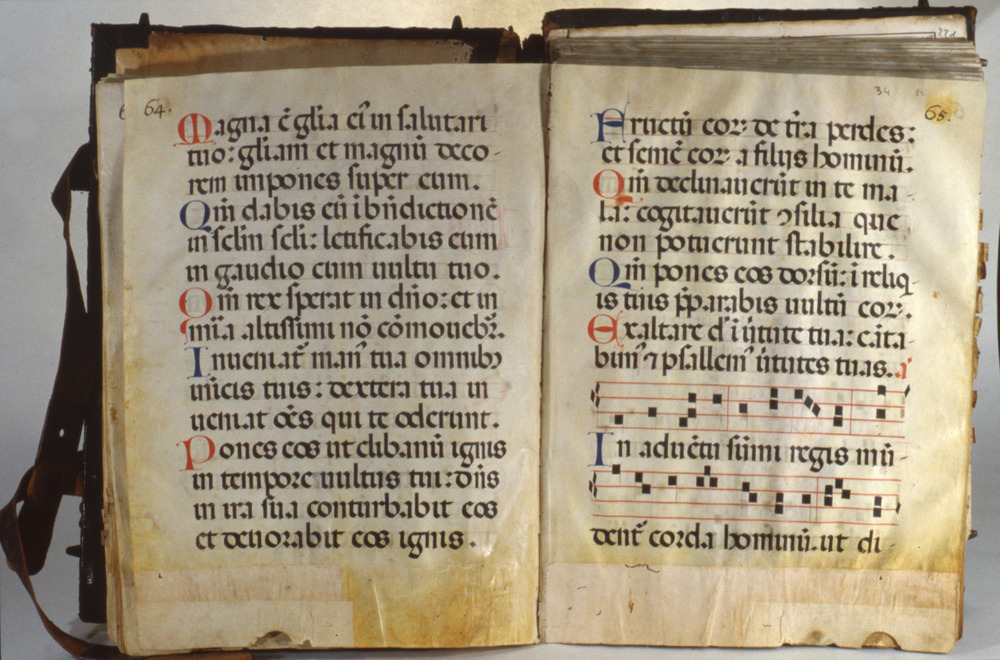 64.
Magna ē glīa eī in salutari
tuo: glīam et magnū deco-
rem impones super eum.
Qm̄ dabis eū ī bn̄dictionē
in sclm̄ scli: letificabis eum
in gaudio cum uultu tuo.
Qm̄ rex sperat in dn̄o: et in
mīa altissimi nō cōmouebr̄.
Inueniat᷑ man᷒ tua omnibꝫ
īmicis tuis: dextera tua in
ueniat oēs qui te oderunt.
Pones eos ut clibanū ignis
in tempore uultus tui: dn̄s
in ira sua conturbabit eos
et deuorabit eos ignis.
34
65.
Fructū eoꝝ de tr̄a perdes:
et semē eoꝝ a filijs hominū.
Qm̄ declinauerūt in te ma-
la: cogitauerūt ꝯsilia que
non potuerunt stabilire.
Qm̄ pones eos dorsū: ī reliq-
is tuis p̄parabis uultū eoꝝ.
Exaltare d᷒ ī ūtute tua: cāta-
bim᷒ ⁊ psallem᷒ ūtutes tuas. a᷒
In aduētu sūmi regis mū-
dent᷑ corda hominū. ut di-